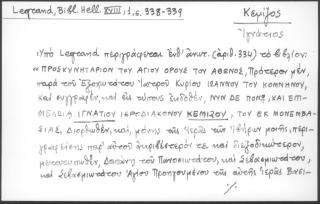 Legrand, Bibl. Hell. XVIII, 1, σ. 338-339
Κεμίζος
Ἰγνάτιος
Ὑπὸ Legrand περιγράφεται ἐνθ' ἀνωτ. (ἀριθ. 334) τὸ βιβλίον:
« ΠΡΟΣΚΥΝΗΤΑΡΙΟΝ ΤΟΥ ΑΓΙΟΥ ΟΡΟΥΣ ΤΟΥ ΑΘΩΝΟΣ, Πρότερον μὲν,
παρὰ τοῦ ΕΞοχωτάτου Ἰατροῦ Κυρίου ΙΩΑΝΝΟΥ ΤΟΥ ΚΟΜΝΗΝΟΥ,
καὶ συγγραφὲν, καὶ εἰς τύπους ἐκδοθὲν, ΝΥΝ ΔΕ ΠΟΝΩ, ΚΑΙ ΕΠΙ-
ΜΕΛΕΙΑ ΙΓΝΑΤΙΟΥ ΙΕΡΟΔΙΑΚΟΝΟΥ ΚΕΜΙΖΟΥ, ΤΟΥ ΕΚ ΜΟΝΕΜΒΑ-
ΣΙΑΣ, Διορθωθὲν, καὶ, μόνης τῆς Ἱερᾶς τῆς Ἰβήρων μονῆς, περι-
γραφείσης παρ' αὐτοῦ ἀκριβέστερόν τε καὶ διεξοδικώτερον,
μετατυπωθὲν, Δαπάνῃ τοῦ Πανοσιωτάτου, καὶ Σεβασμιωτάτου,
καὶ Σεβασμιωτάτου Ἁγίου Προηγουμένου τῆς αὐτῆς Ἱερᾶς Βασι-
·/.